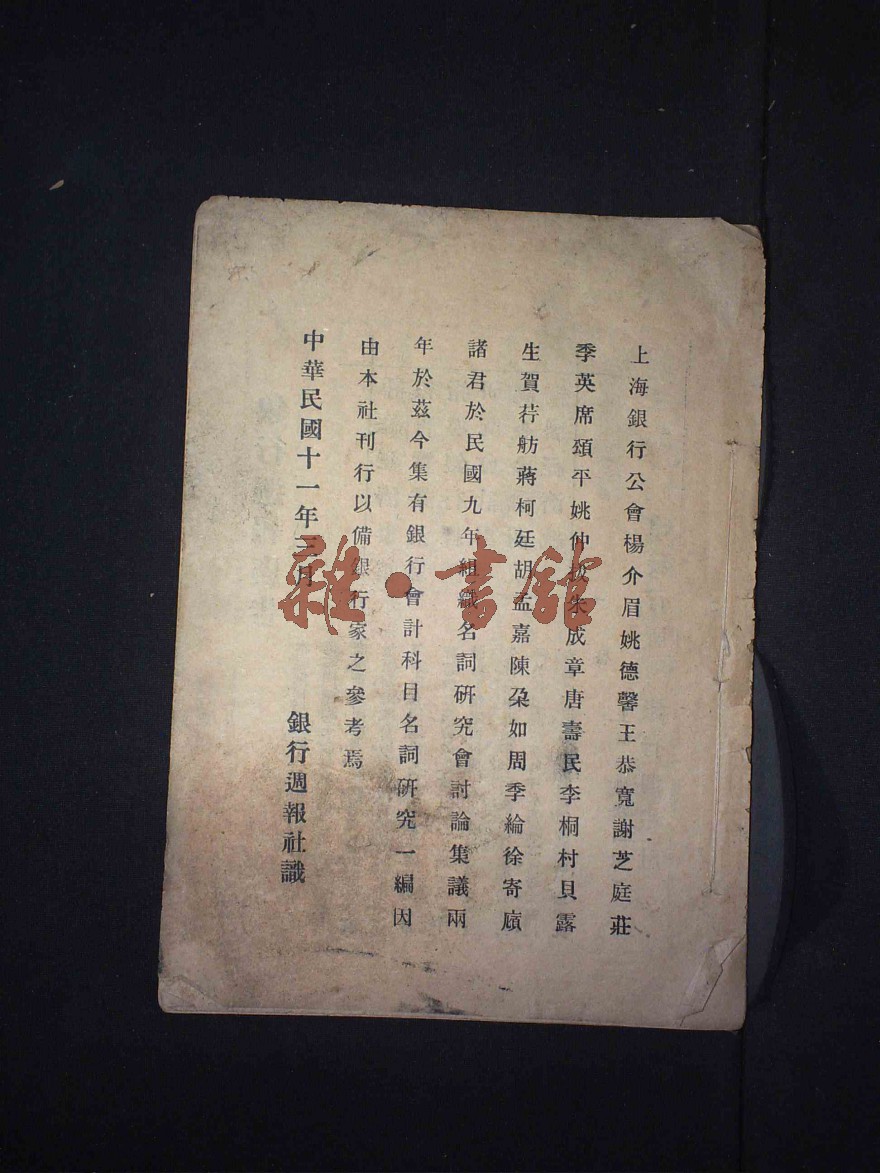 上海銀行公會楊介眉姚德馨王恭寬謝芝庭莊
季英席頌平姚仲拔朱成章唐壽民李桐村貝露
生賀荇舫蔣柯廷胡孟嘉陳朶如周季綸徐寄廎
諸君於民國九年組織名詞硏究會討論集議兩
年於茲今集有銀行會計科目名詞硏究一編因
由本社刊行以備銀行家之參考焉
中華民國十一年三月
銀行週報社識
雜·書館